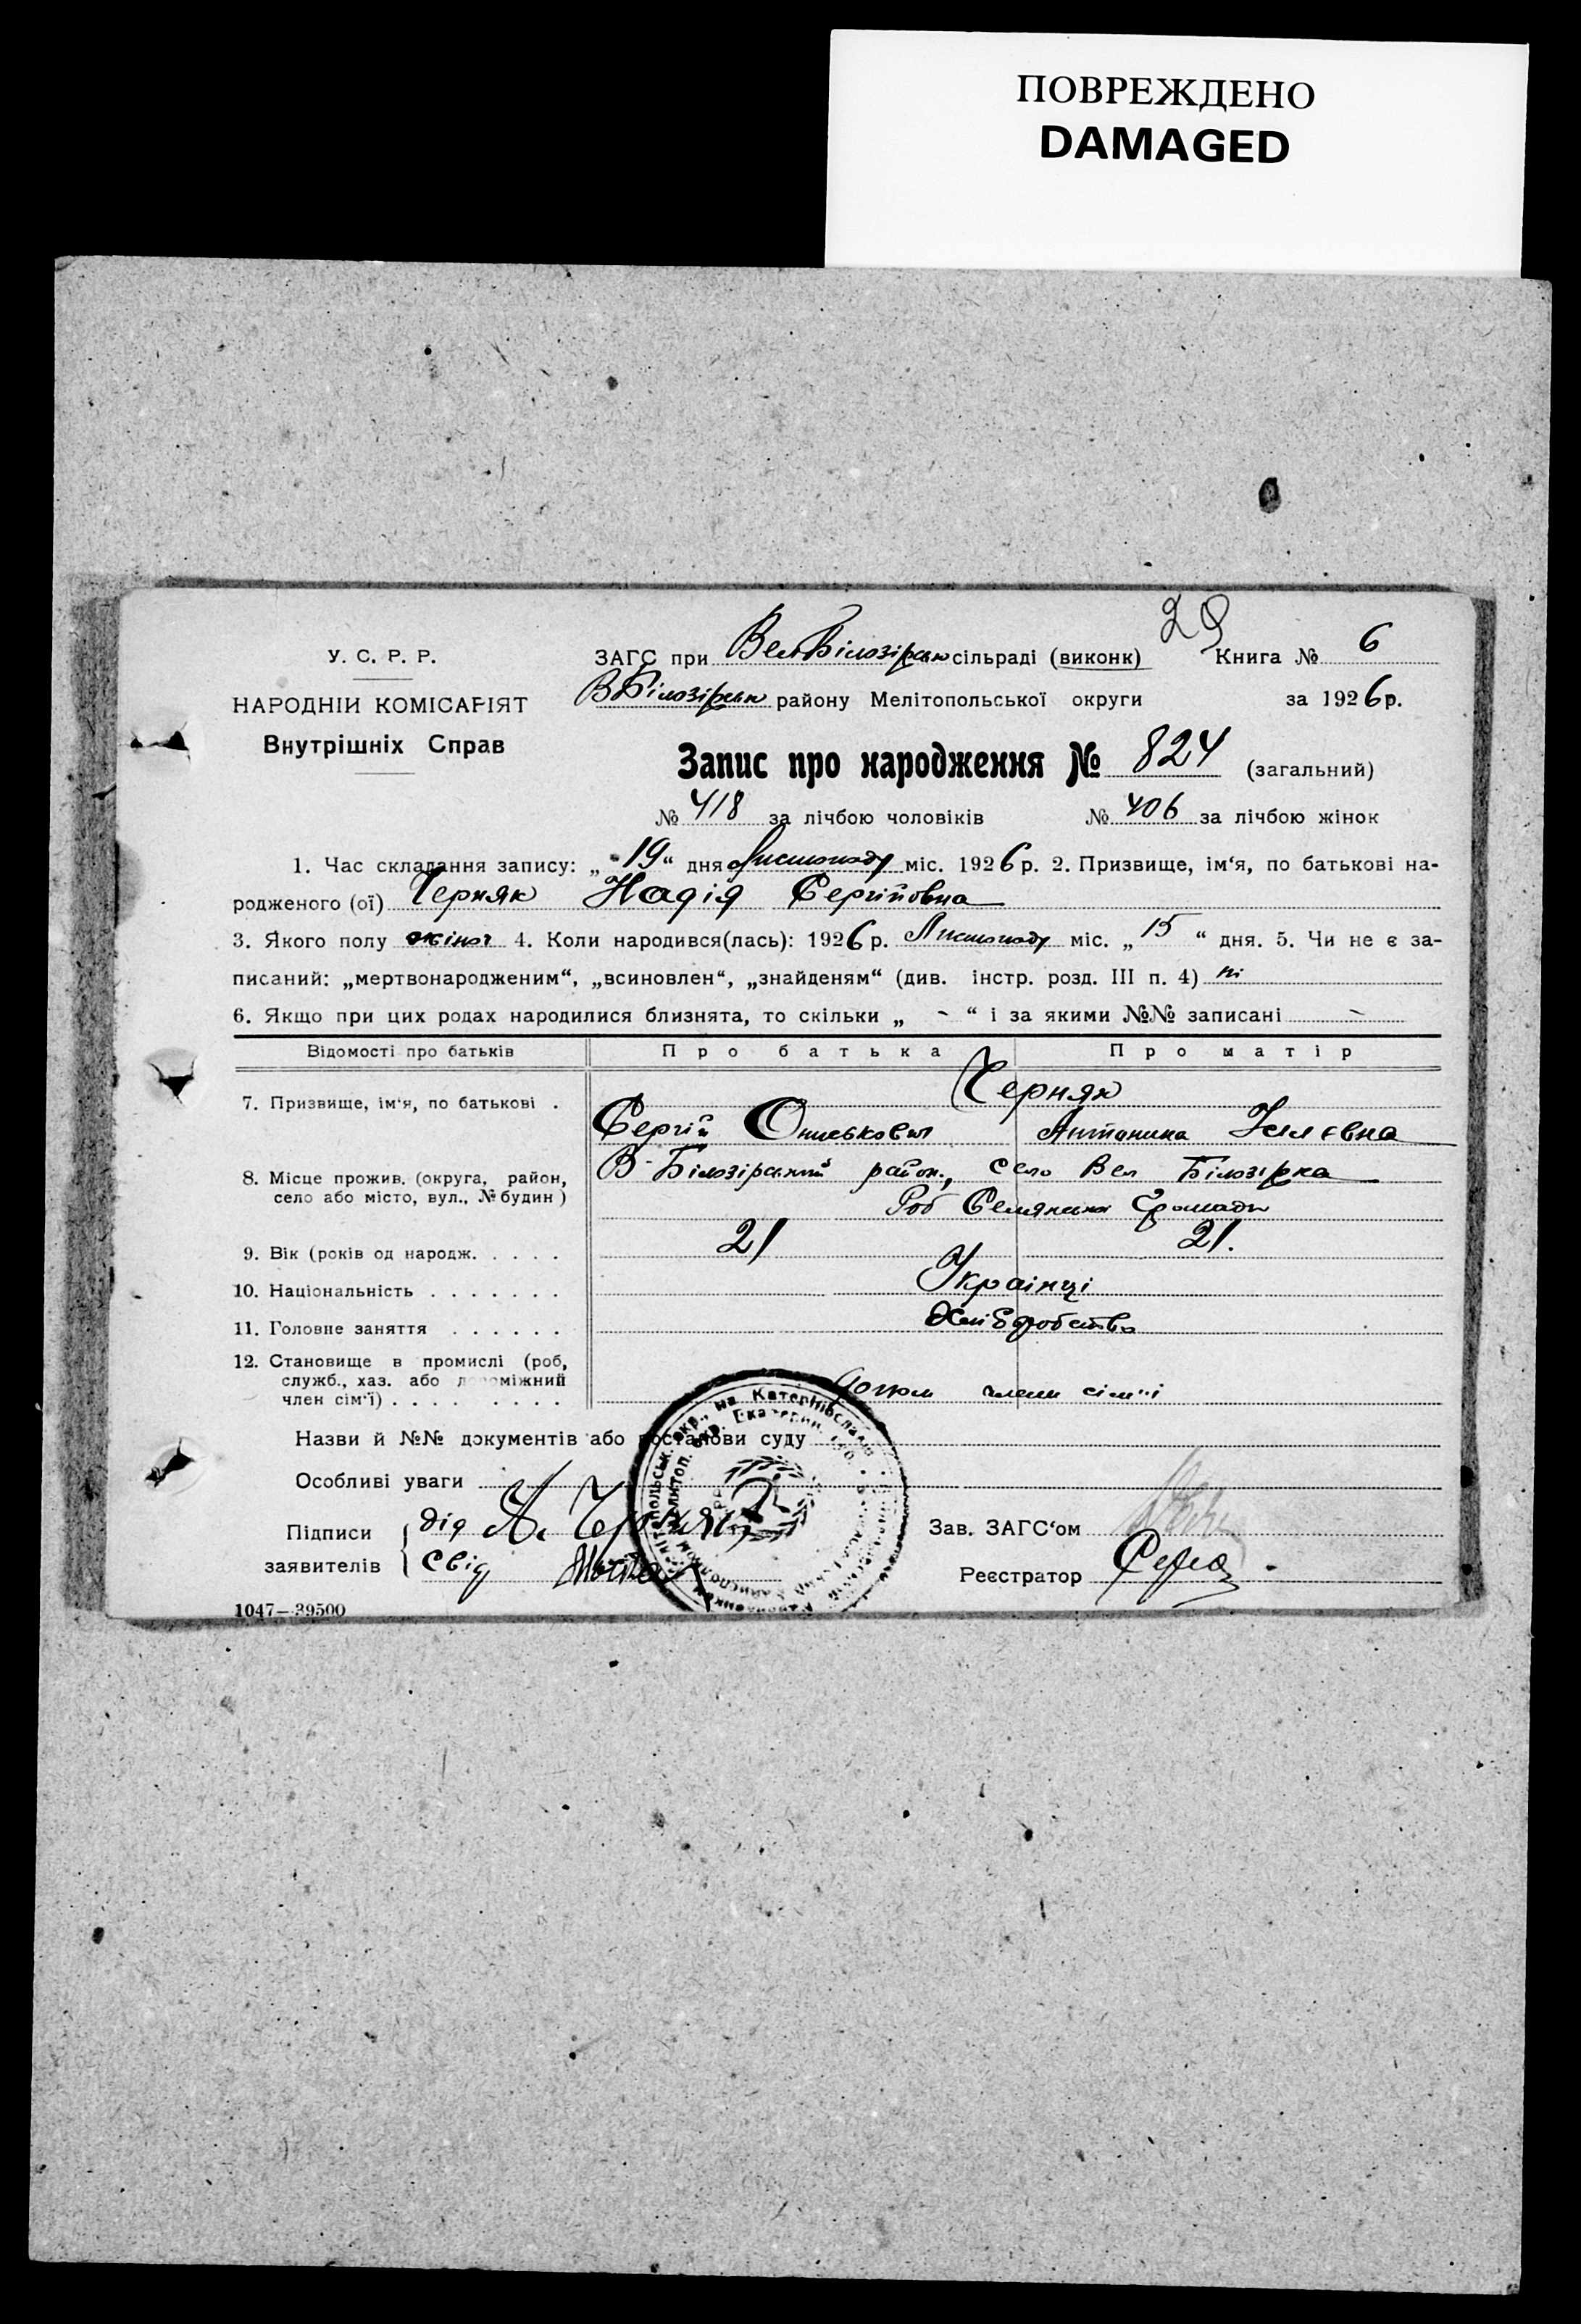 ПОВРЕЖДЕНО
DAMAGED
29
У. С. Р. Р.
НАРОДНІЙ КОМІСАРІЯТ
Внутрішніх Справ
ЗАГС при Вел Білозірськ сільраді (виконк) Книга № 6
В Білозірськ району Мелітопольської округи за 1926 р.
Запис про народження № 824 (загальний)
№ 418 за лічбою чоловіків № 406 за лічбою жінок
1. Час складання запису: „19“ дня Листопаду міс. 1926 р. 2. Призвище, ім'я, по батькові на-
родженого (ої) Черняк Надія Сергійовна
3. Якого полу жіноч 4. Коли народився(лась): 1926 р. Листопаду міс. „15“ дня. 5. Чи не є за-
писаний: „мертвонародженим“, „всиновлен“, „знайденям“ (див. інстр. розд. III п. 4) ні
6. Якщо при цих родах народилися близнята, то скільки „ - “ і за якими №№ записані -
Відомості про батьків Про батька Про матір
7. Призвище, ім'я, по батькові . Черняк
Сергій Антонина
8. Місце прожив. (округа, район, В-Білозірський район, село Вел Білозірка
село або місто, вул., № будин)
9. Вік (років од народж. . . . . 21 21.
10. Національність . . . . . . . Українці
11. Головне заняття . . . . . . Хліборобство
12. Становище в промислі (роб,
служб., хаз. або допоміжний
член сім'ї) . . . . . . . . члени сім'ї
Назви й №№ документів або постанови суду
Особливі уваги
Підписи дід А. Черняк Зав. ЗАГС'ом
заявителів свід Реєстратор
1047—39500